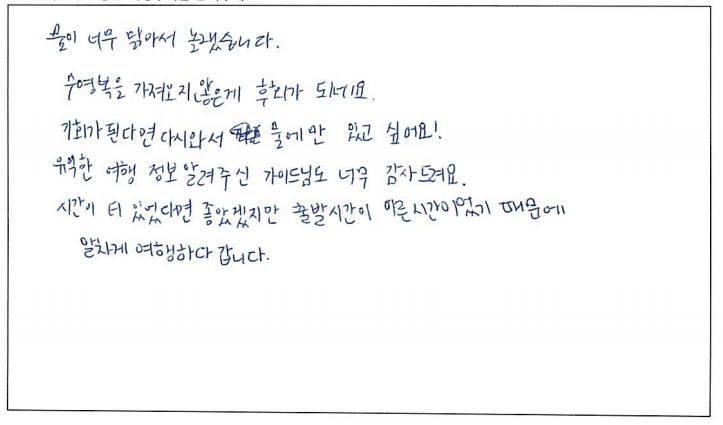 물이 너무 맑아서 놀랬습니다.
수영복을 가져오지 않은게 후회가 되네요.
기회가 된다면 다시와서 물에만 있고 싶어요!
유익한 여행 정보 알려주신 가이드님도 너무 감사드려요.
시간이 더 있었다면 좋았겠지만 출발시간이 이른시간이었기 때문에
알차게 여행하다 갑니다.